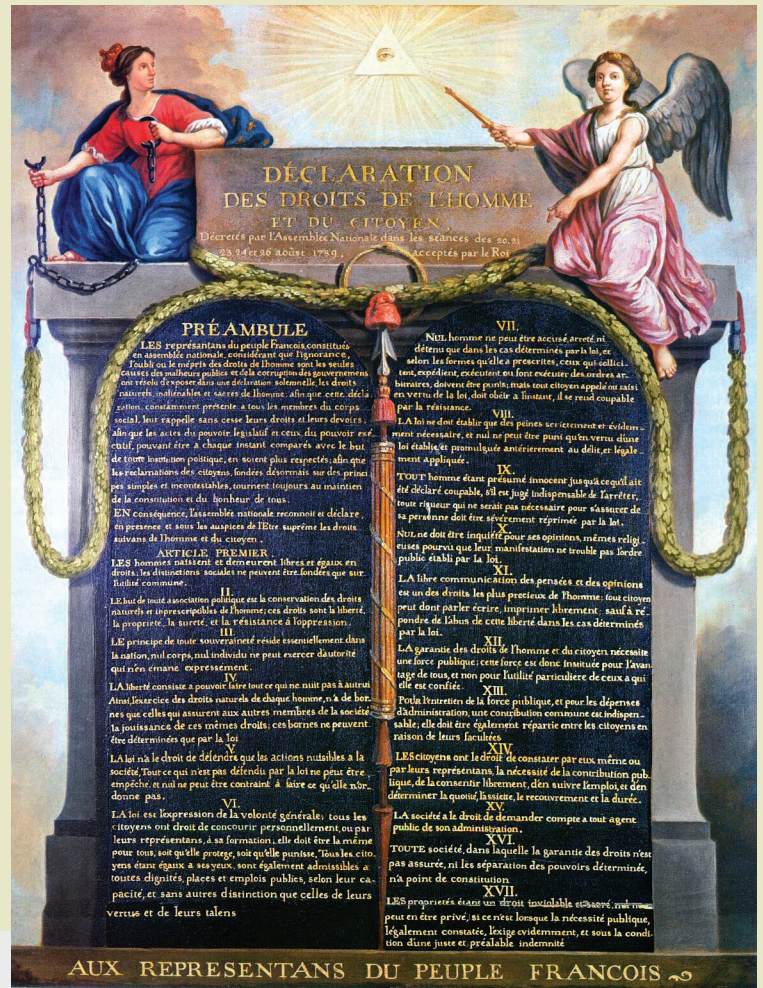 DÉCLARATION
DES DROITS DE L'HOMME
ET DU CITOYEN,
Décretés par l'Assemblée Nationale dans les séances des 20, 21
23, 24 et 26 août 1789, acceptés par le Roi
PRÉAMBULE
LES représantans du peuple Francois, constitués
en assemblée nationale, considérant que l'ignorance,
l'oubli ou le mépris des droits de l'homme sont les seules
causes des malheurs publics et de la corruption des gouvernemens
ont résolu d'exposer dans une déclaration solemnelle, les droits
naturels, inaliénables et sacrés de l'homme: afin que cette décla
ration, constamment présente a tous les membres du corps
social, leur rappelle sans cesse leurs droits et leurs devoirs,
afin que les actes du pouvoir legislatif et ceux du pouvoir exé
cutif, pouvant être a chaque instant comparés avec le but
de toute institution politique, en soient plus respectés; afin que
les reclamations des citoyens, fondées désormais sur des princi
pes simples et incontestables, tournent toujours au maintien
de la constitution et du bonheur de tous.
EN conséquence, l'assemblée nationale reconnoit et déclare,
en presence et sous les auspices de l'Etre suprême les droits
suivans de l'homme et du citoyen.
ARTICLE PREMIER.
LES hommes naissent et demeurent libres et égaux en
droits; les distinctions sociales ne peuvent être fondées que sur
l'utilité commune.
II.
LE but de toute association politique est la conservation des droits
naturels et inprescriptibles de l'homme; ces droits sont la liberté,
la propriete, la sureté, et la résistance à l'oppression.
III.
LE principe de toute souveraineté réside essentiellement dans
la nation, nul corps, nul individu ne peut exercer d'autorité
qui n'en émane expressement.
IV.
LA liberté consiste a pouvoir faire tout ce qui ne nuit pas à autrui
Ainsi, l'exercice des droits naturels de chaque homme, n'a de bor-
nes que celles qui assurent aux autres membres de la société
la jouissance de ces mêmes droits; ces bornes ne peuvent
être déterminées que par la loi
V.
LA loi n'a le droit de défendre que les actions nuisibles à la
société, Tout ce qui n'est pas défendu par la loi ne peut être
empêché, et nul ne peut être contraint à faire ce qu'elle n'or-
donne pas.
VI.
LA loi est l'expression de la volonté générale; tous les
citoyens ont droit de concourir personnellement, ou par
leurs représentans, à sa formation; elle doit être la même
pour tous, soit qu'elle protege, soit qu'elle punisse, Tous les cito-
yens étant égaux a ses yeux, sont également admissibles a
toutes dignités, places et emplois publics, selon leur ca-
pacité, et sans autres distinction que celles de leurs
vertus et de leurs talens
VII.
NUL homme ne peut être accusé, arreté, ni
détenu que dans les cas déterminés par la loi, et
selon les formes qu'elle a prescrites, ceux qui sollici-
tent, expédient, exécutent ou font exécuter des ordres ar-
bitraires, doivent être punis; mais tout citoyen appelé ou saisi
en vertu de la loi, doit obéir a l'instant, il se rend coupable
par la résistance.
VIII.
LA loi ne doit établir que des peines strictement et évidem-
ment nécessaire, et nul ne peut être puni qu'en vertu d'une
loi établie et promulguée antérierement au délit, et légale-
ment appliquée.
IX.
TOUT homme étant présumé innocent jusqu'à ce qu'il ait
été déclaré coupable, s'il est jugé indispensable de l'arrêter,
toute rigueur qui ne serait pas nécessaire pour s'assurer de
sa personne doit être sévérement réprimée par la loi.
X.
NUL ne doit être inquiété pour ses opinions, mêmes religi-
euses pourvu que leur manifestation ne trouble pas l'ordre
public établi par la loi.
XI.
LA libre communication des pensées et des opinions
est un des droits les plus precieux de l'homme; tout citoyen
peut dont parler écrire, imprimer librement: sauf à ré-
pondre de l'abus de cette liberté dans les cas déterminés
par la loi.
XII.
LA garantie des droits de l'homme et du citoyen nécessite
une force publique; cette force est donc instituée pour l'avan-
tage de tous, et non pour l'utilité particuliere de ceux a qui
elle est confiée.
XIII.
Pour l'entretien de la force publique, et pour les dépenses
d'administration, une contribution commune est indispen-
sable; elle doit être également répartie entre les citoyens en
raison de leurs facultées
XIV.
LES citoyens ont le droit de constater par eux même ou
par leurs représentans, la nécessité de la contribution pub-
lique, de la consentir librement, d'en suivre l'emploi, et d'en
déterminer la quotité, l'assiette, le recouvrement et la durée.
XV.
LA société a le droit de demander compte a tout agent
public de son administration.
XVI.
TOUTE société, dans laquelle la garantie des droits n'est
pas assurée, ni les séparation des pouvoirs déterminée,
n'a point de constitution
XVII.
LES proprietés étant un droit inviolable et sacré, nul ne
peut en être privé, si ce n'est lorsque la nécessité publique,
légalement constatée, l'exige evidemment, et sous la condi-
tion d'une juste et préalable indemnité
AUX REPRESENTANS DU PEUPLE FRANCOIS